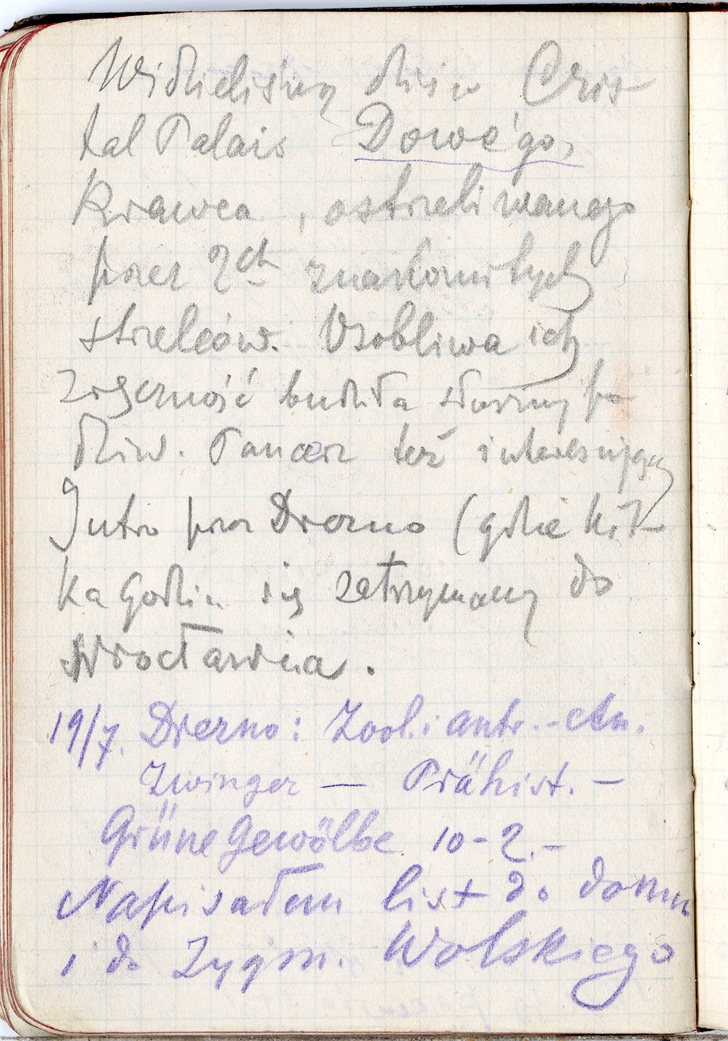 Widzieliśmy dziś w Cris
tal Palais Dowe'go,
Krawca, ostrzeliwanego
przez 2ch znakomitych
strzelców. Osobliwa ich
zręczność budziła słuszny po
dziw. Pancerz też interesujący
Jutro przez Drezno (gdzie kil-
ka godzin się zatrzymamy do
Wrocławia.
19/7. Drezno: Zool. i antr.-etn.
Zwinger — Prähist. –
Grüne Gewölbe 10-2.–
Napisałem list do domu
i do Zygm. Wolskiego